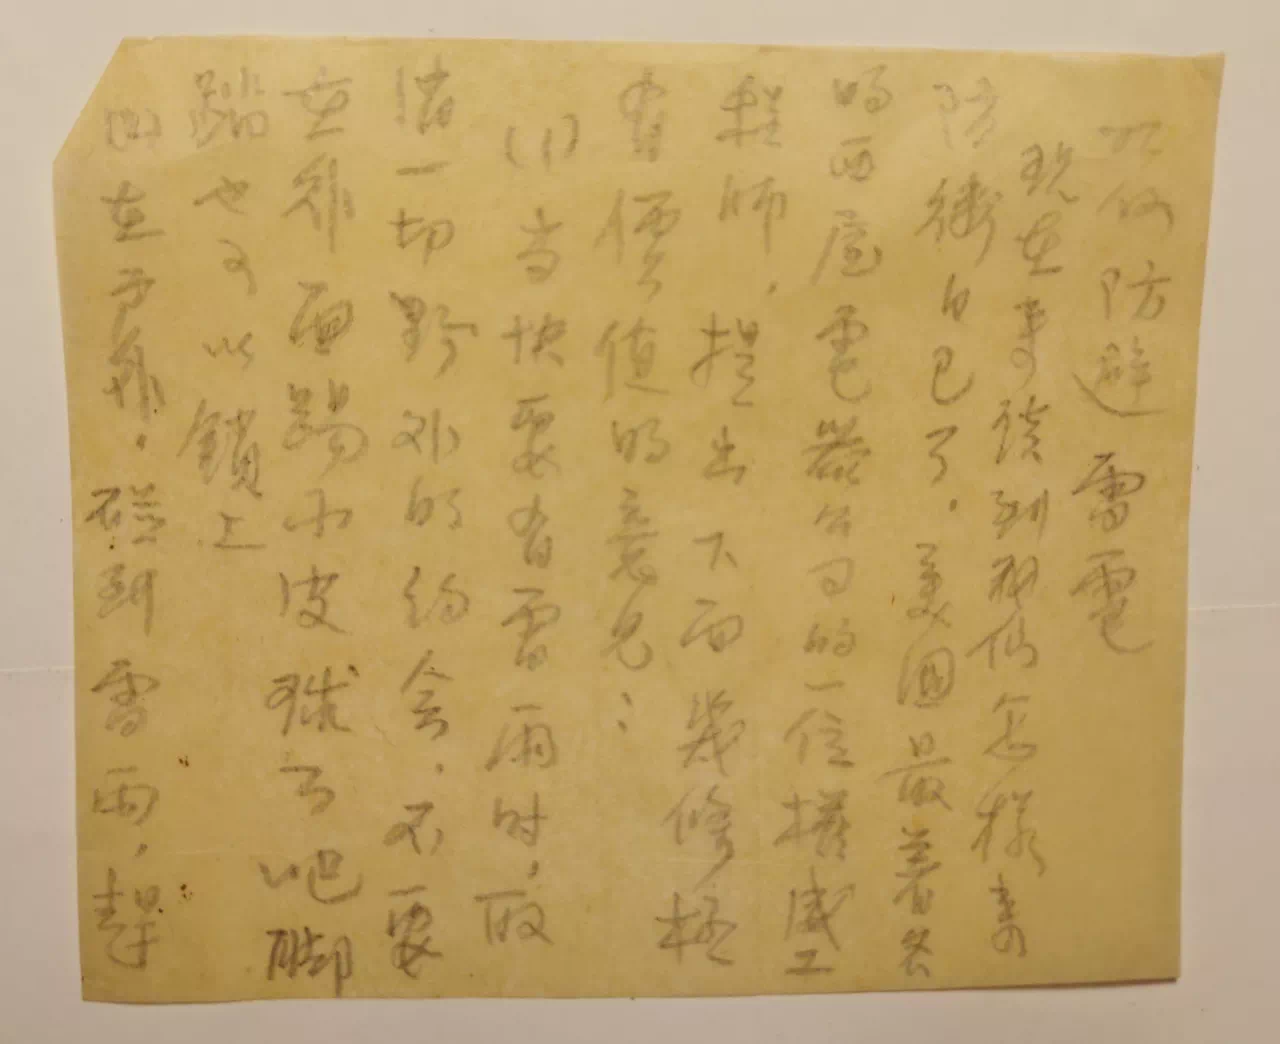 如何防避雷電
現在来談到我们怎樣来
防衛自己了．美国最著名
的西屋電器公司的一位權威工
程師，提出下面幾條極
有價值的意見：
(1)当快要有雷雨时，取
消一切野外的約会．不要
在外面踢小皮球了吧脚
踏也可以鎖上
在郊外．碰到雷雨，趕